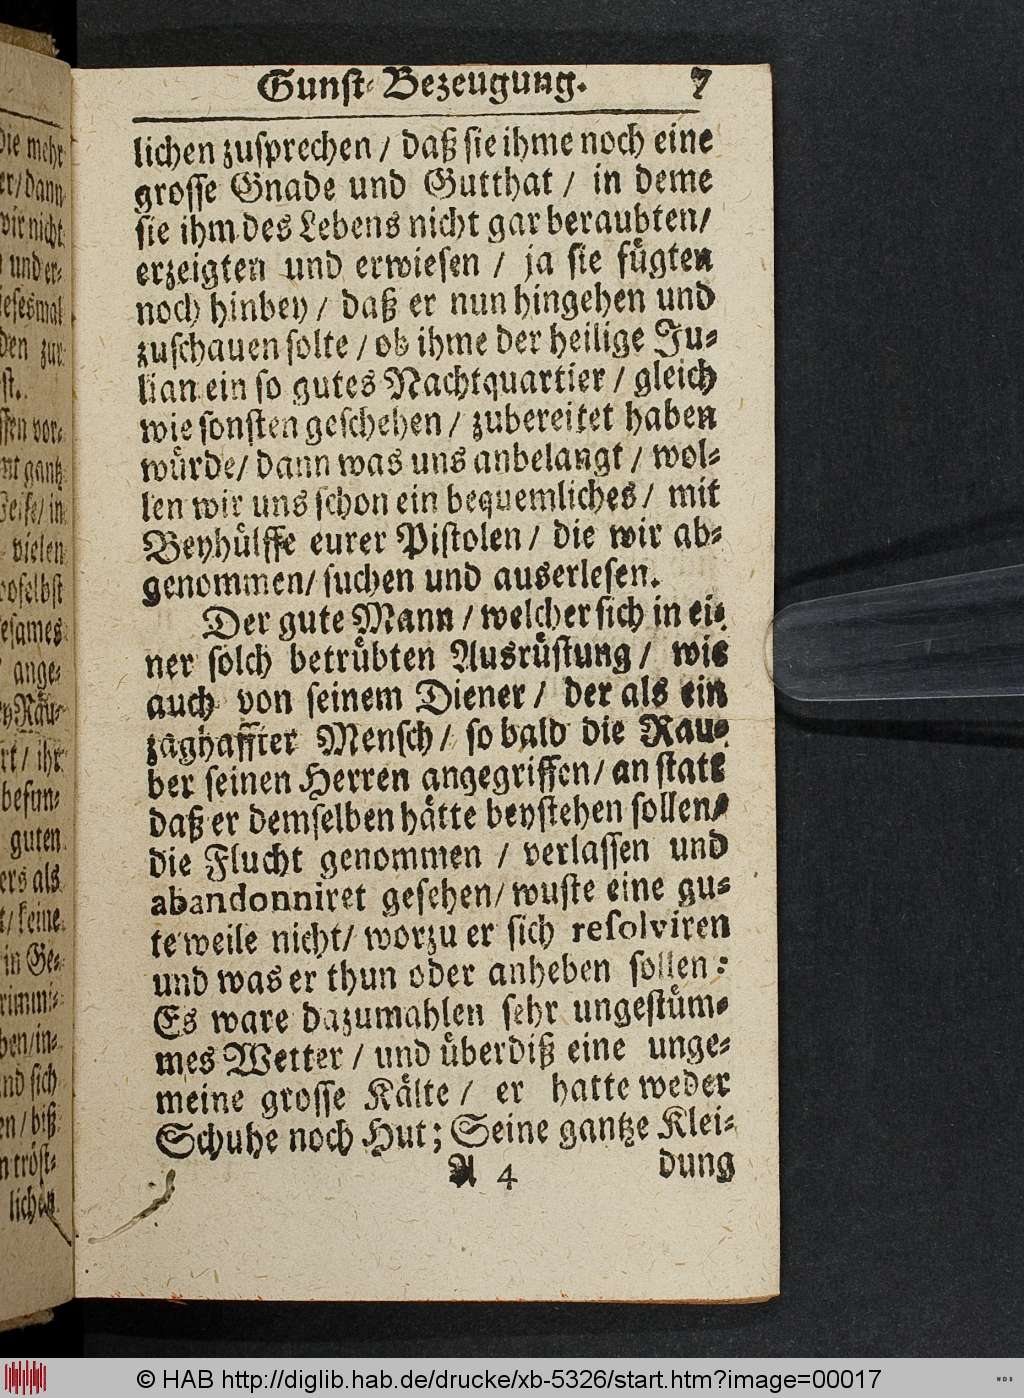 Gunst-Bezeugung. 7
lichen zusprechen / daß sie ihme noch eine
grosse Gnade und Gutthat / in deme
sie ihm des Lebens nicht gar beraubten/
erzeigten und erwiesen / ja sie fügten
noch hinbey / daß er nun hingehen und
zuschauen solte / ob ihme der heilige Ju-
lian ein so gutes Nachtquartier / gleich
wie sonsten geschehen / zubereitet haben
würde/ dann was uns anbelangt / wol-
len wir uns schon ein bequemliches / mit
Beyhülffe eurer Pistolen / die wir ab-
genommen/ suchen und auserlesen.
Der gute Mann / welcher sich in ei-
ner solch betrübten Ausrüstung / wie
auch von seinem Diener / der als ein
zaghaffter Mensch / so bald die Rau-
ber seinen Herren angegriffen/ an statt
daß er demselben hätte beystehen sollen/
die Flucht genommen / verlassen und
abandonniret gesehen/ wuste eine gu-
te weile nicht/ worzu er sich resolviren
und was er thun oder anheben sollen:
Es ware dazumahlen sehr ungestüm-
mes Wetter / und überdiß eine unge-
meine grosse Kälte / er hatte weder
Schuhe noch Hut; Seine gantze Klei-
A 4 dung
die mehr
er/ dann
wir nicht
und er-
iesesmal
den zur
st.
ffen vor-
mt gantz
Weise/ in
vielen
woselbst
esames
ange-
y Räu-
rt / ihr
befun-
guten
ers als
t/ keine
in Ge-
rimmi-
ben/in-
nd sich
en / biß
n tröst-
lichen
© HAB http://diglib.hab.de/drucke/xb-5326/start.htm?image=00017